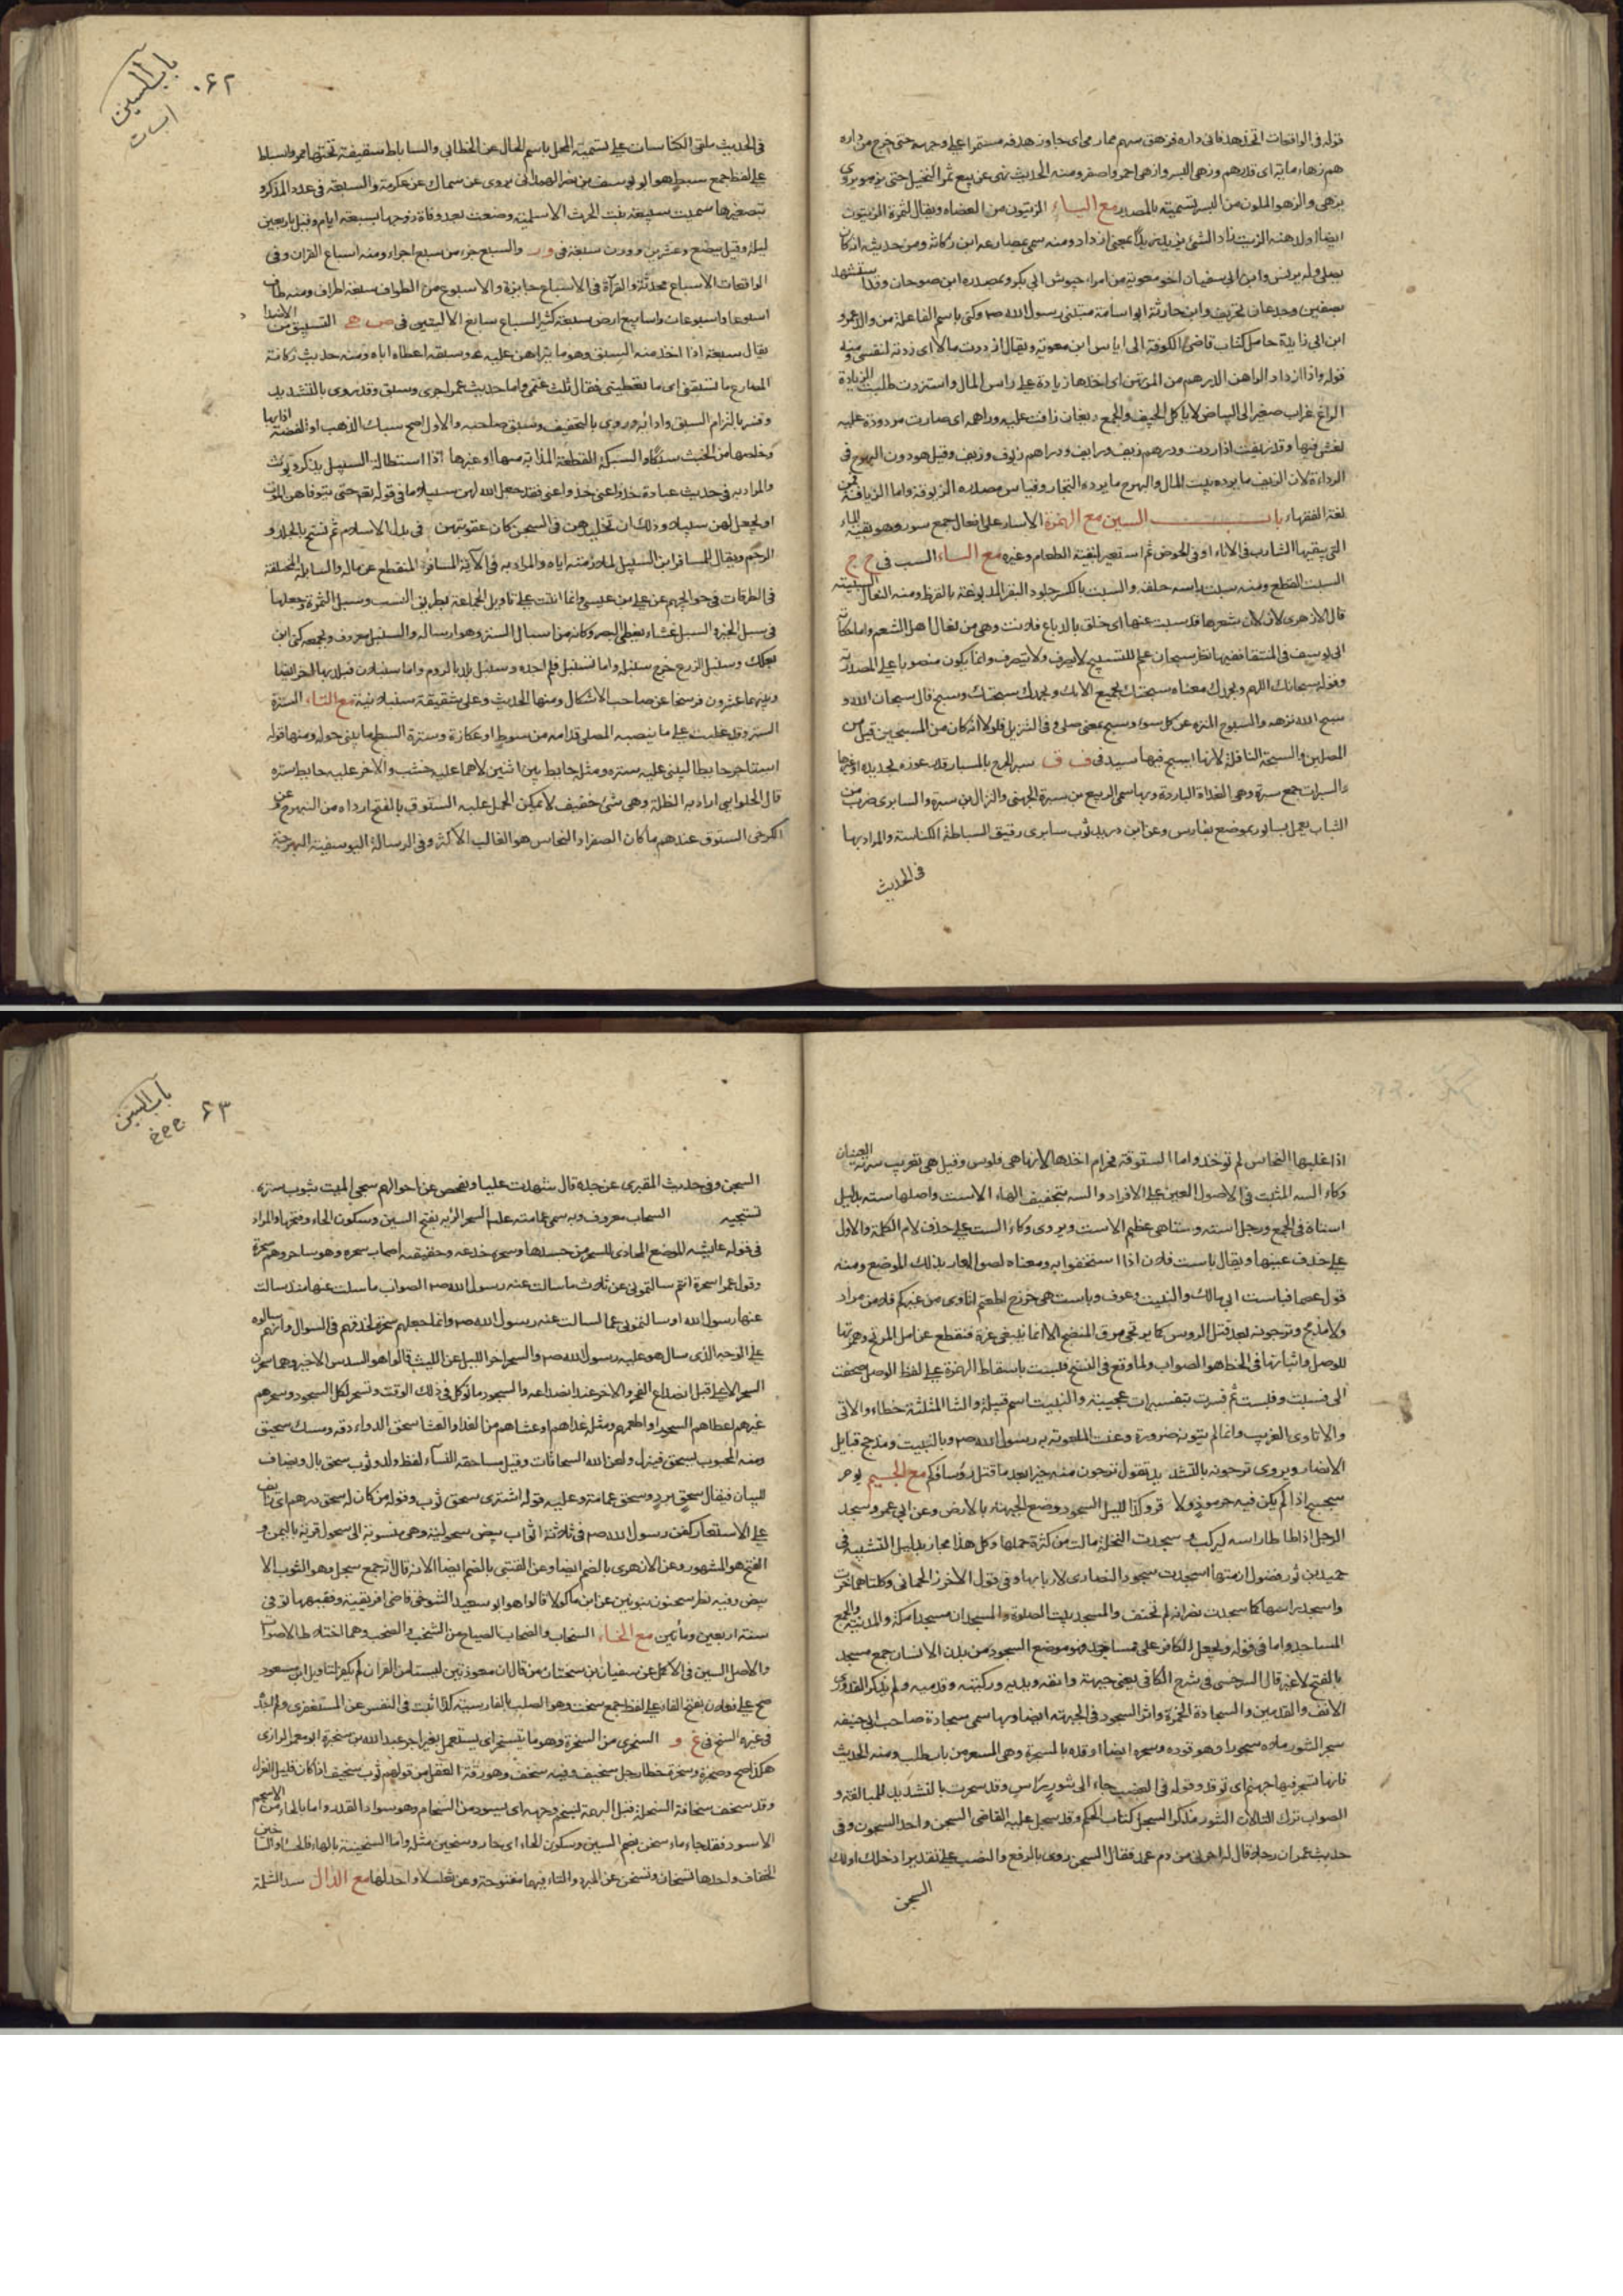 قوله في الواقعات اتخذ هدفا في داره فزهق سهم مما رمى اى جاوز هدفه مستمرا على وجهه حتى خرج من داره
هم زهاء مائة اى قدرهم وزهى البسر وازهى احمر واصفر ومنه الحديث نهى عن بيع ثمر النخيل حتى يزهو ويروى
يزهى والزهو الملون من البسر تسمية بالمصدر مع الياء الزيتون من العضاه ويقال لثمرة الزيتون
ايضا ولدهنه الزيت زاد الشئ يزيد زيدا بمعنى ازداد ومنه سمى بمضارعه ابن ركانة ومن حديثه انه كان
ابن ابي زايدة حامل كتاب قاضى الكوفة الى اياس ابن معوية ويقال ازددت مالا اى زدته لنفسى ومنه
قوله واذا ازداد الراهن الدرهم من المرتهن اى اخذها زيادة على راس المال واستزدت طلبت الزيادة
الزاغ غراب صغير الى البياض لا ياكل الجيف والجمع زيغان زافت عليه دراهمه اى صارت مردودة عليه
لغش فيها وقد زيفت اذا ردت ودرهم زيف وزايف ودراهم زيوف وزيف وقيل هو دون البهرج فى
الرداءة لان الزيف ما يرده بيت المال والبهرج ما يرده التجار وقياس مصدره الزيوفة واما الزيافة فمن
لغة الفقهاء باب السين مع الهمزة الاسار على افعال جمع سور وهو بقية الماء
التي يبقيها الشارب فى الاناء او فى الحوض ثم استعير لبقية الطعام وغيره مع الباء السبب فى ح ج
السبت القطع ومنه سبت راسه حلقه والسبت بالكسر جلود البقر المدبوغة بالقرظ ومنه النعال السبتية
قال الازهرى لان شعرها قد سبت عنها اى حلق بالدباغ فلانت وهى من نعال اهل الشعم واما حكاية
ابي يوسف فى المنتقا ففيها نظر سبحان علم للتسبيح لا يصرف ولا يتصرف وانما يكون منصوبا على المصدرية
وقوله سبحانك اللهم وبحمدك معناه سبحتك بجميع الايك وبحمدك سبحتك وسبح قال سبحان الله و
سبح الله نزهه والسبوح المنزه عن كل سوء وسبح بمعنى صلى وفى التنزيل فلولا انه كان من المسبحين قيل من
المصلين والسبحة النافلة لانها يسبح فيها سبد فى ف ق سبر الجرح بالمسبار قدر غوره بحديدة او غيرها
والسبرات جمع سبرة وهى الغداة الباردة وبها سمى الربيع بن سبرة الجهنى والنزال بن سبرة والسابرى ضرب من
الثياب يعمل بسابور بموضع بفارس وعن ابن دريد ثوب سابرى رقيق السباطة الكناسة والمراد بها
فى الحديث
باب السين
ا ب ت
۰۶۲
فى الحديث ملقى الكناسات على تسمية المحل باسم الحال عن الخطابي والساباط سقيفة تحتها ممر واسباط
على لفظ جمع سبط هو ابو يوسف بن نصر الهمدانى يروى عن سماك عن عكرمة والسبعة فى عدد المذكر و
بتصغيرها سميت سبيعة بنت الحرث الاسلمية وضعت بعد وفاة زوجها بسبعة ايام وقيل باربعين
ليلة وقيل ببضع وعشرين ووزن سبعة فى و ر والسبع جزء من سبع اجزاء ومنه اسباع القران وفى
الواقعات الاسباع محدثة والقرآة فى الاسباع جايزة والاسبوع من الطواف سبعة اطراف ومنه طاف
اسبوعا واسبوعات واسابيع ارض سبعة كثيرة السباع سابغ الاليتين فى ص ه السبق من
يقال سبقه اذا اخذ منه السبق وهو ما يتراهن عليه و سبقه اعطاه اياه ومنه حديث ركانة
المصارع ما تسبقنى اى ما تعطينى فقال ثلث غنمى واما حديث عمر اجرى وسبق وقد روى بالتشديد
وفسر بالتزام السبق وادائه وروى بالتخفيف وسبق صاحبه والاول اصح سبك الذهب او الفضة اذابها
وخلصها من الخبث سبكا والسبيكة القطعة المذابة منها او غيرها اذا استطالت السبيل يذكر ويؤنث
والمراد به فى حديث عبادة خذوا عنى خذوا عنى فقد جعل الله لهن سبيلا ما فى قوله تعم حتى يتوفاهن الموت
او يجعل لهن سبيلا وذلك ان تخليدهن فى السجن كان عقوبتهن فى بدء الاسلام ثم نسخ بالجلد و
الرجم ويقال للمسافر ابن السبيل لملازمته اياه والمراد به فى الآية المسافر المنقطع عن ماله والسابلة المختلفة
فى الطرقات فى حوايجهم عن على بن عيسى وانما انثت على تاويل الجماعة بطريق النسب وسبل الثمرة جعلها
فى سبل الخير والسبل غشاء يغطى البصر وكانه من اسبال الستر وهو ارساله والسنبل معروف وبجمعه كنى ابن
بعكك وسنبل الزرع خرج سنبله واما تسنبل فلم اجده وسنبل بلد بالروم واما سنبلان فبلد بها ايضا
وبينهما عشرون فرسخا عن صاحب الاشكال ومنها الحديث وعلى شقيقة سنبلانية مع التاء السترة
الستر وقد غلبت على ما ينصبه المصلى قدامه من سوط او عكازة وسترة السطح ما يبنى حوله ومنها قوله
استاجر حايطا ليبنى عليه سترة ومثله حايط بين اثنين لاحدهما عليه خشب والآخر عليه حايط سترة
قال الحلوايى اراد به الظلة وهى شئ خفيف لا يمكن الحمل عليه الستوق بالفتح ارداه من النبهرج عن
الكرخى الستوق عندهم ما كان الصفر او النحاس هو الغالب الاكثر وفى الرسالة اليوسفية البهرجة
اذا غلبها النحاس لم توخذ واما الستوقة فحرام اخذها لانها هى فلوس وقيل هى تعريب
وكاء السه المثبت فى الاصول العين على الافراد والسه بتخفيف الهاء الاست واصلها سته بدليل
استاه فى الجمع ورجل استه وستاهى عظيم الاست ويروى وكاء الست على حذف لام الكلمة والاول
على حذف عينها ويقال باست فلان اذا استخفوا به ومعناه لصق العار بذلك الموضع ومنه
قول عصما فباست ابي مالك والنبيت وعوف وباست بني خزرج اطعتم اتاوى من غيركم فلا من مراد
ولا مذحج وترجونه بعد قتل الرؤس كما يرتجى مرق المنضج الا انما يبتغى غرة فنقطع عن امل المرتجى وهمزتها
للوصل واثباتها فى الخط هو الصواب ولما وقع فى النسخ فلبست باسقاط الهمزة على لفظ الوصل صحفت
الى فسبت وفلست ثم فسرت بتفسيرات عجيبة والنبيت اسم قبيلة والثا المثلثة خطاء والاتى
والاتاوى الغريب وانما لم ينون ضرورة وعنت الملعونة به رسول الله ص وبالنبيت ومذحج قبايل
الانصار ويروى ترجونه بالتشديد تقول ترجون منه خيرا بعد ما قتل رؤسافكم مع الجيم
الرجل اذا طاطا راسه ليركب و سجدت النخلة مالت من كثرة حملها وكل هذا مجاز بدليل التشبيه فى
حميد بن ثور فضول ازمتها اسجدت سجود النصارى لاربابها وفى قول الاخرز الحمانى وكلتاهما خرت
واسجد راسها كما سجدت نصرانة لم تحنف والمسجد بيت الصلوة والمسجدان مسجدا مكة والمدينة والجمع
المساجد واما فى قوله ويجعل الكافور على مساجده وهو موضع السجود من بدن الانسان جمع مسجد
بالفتح لا غير قال السرخسى فى شرح الكافى يعنى جبهته وانفه ويديه وركبتيه وقدميه ولم يذكر القدورى
الانف والقدمين والسجادة الخمرة واثر السجود فى الجبهة ايضا وبها سمى سجادة صاحب ابي حنيفة
سجر التنور ملاه سجورا وهو وقوده وسجره ايضا اوقده بالمسجرة وهى المسعر من باب طلب ومنه الحديث
فانها تسجر فيها جهنم اى توقد وقوله فى الغصب جاء الى تنور رآس وقد سجرت بالتشديد للمبالغة و
الصواب ترك التاء لان التنور مذكر السجل كتاب الحكم وقد سجل عليه القاضى السجن واحد السجون وفى
حديث عمر ان رجلا قال له اجرنى من دم عمد فقال السجن روى بالرفع والنصب على تقدير ادخلك او لك
السجن
باب السين
ج ح خ
۶۳
السجن وفى حديث المقبرى عن جده قال شهدت عليا ويفحص عن احوالهم سجى الميت بثوب ستره
تسجيه السحاب معروف وبه سمى عمامته علم السحر الرئة بفتح السين وسكون الحاء وفتحها والمراد
فى قوله عايشة الموضع المحاذى للسحر من جسدها وسحره خدعه وحقيقته اصاب سحره وهو ساحر وهم سحرة
وقول عمر اسحرة انتم سالتمونى عن ثلاث ما سالت عنه رسول الله ص الصواب ما سئلت عنها منذ سالت
عنها رسول الله او سالتمونى عما سالت عنه رسول الله ص وانما جعلهم سحرة لحذقهم فى السوال وانهم سالوه
على الوجه الذى سال هو عليه رسول الله ص والسحر اخر الليل عن الليث قالوا هو السدس الاخير وهما سحران
السحر الاعلى قبل انصداع الفجر والاخر عند انصداعه والسحور ما توكل فى ذلك الوقت وتسحر اكل السحور وسحرهم
غيرهم اعطاهم السحور او اطعمهم ومثله غداهم وعشاهم من الغداء والعشا سحق الدواء دقه ومسك سحيق
ومنه المجبوب يسحق فينزل ولعن الله السحاقات وقيل مساحقة النساء لفظ مولد وثوب سحق بال ويضاف
للبيان فيقال سحق برد وسحق عمامة وعليه قوله اشترى سحق ثوب وقوله من كان له سحق درهم اى زايف
على الاستعارة كفن رسول الله ص فى ثلاثة اثواب بيض سحولية وهى منسوبة الى سحول قرية باليمن و
الفتح هو المشهور وعن الازهرى بالضم ايضا وعن القتبى بالضم ايضا الا انه قال انه جمع سحل وهو الثوب الا
بيض وفيه نظر سحنون بنونين عن ابن ماكولا قالوا هو ابو سعيد التنوخى قاضى افريقية وفقيهها توفى
سنة اربعين ومأتين مع الخاء السخاب والصخاب الصياح من السخب والصخب وهما اختلاط الاصوات
والاصل السين فى الاكمل عن سفيان بن سختان من قال ان معوذتين ليستا من القران لم يكفر لتاويل ابن مسعود
صح على فعلان بفتح الفا على لفظ جمع سخت وهو الصلب بالفارسية كذا ثبت فى النفى عن المستغفرى ولم اجد
فى غيره السخ فى غ و السخرى من السخرة وهو ما يتسخر اى يستعمل بغير اجر عبد الله بن سخبرة ابو معمر الرازى
هكذا صح وصخرة وسخرة خطا رجل سخيف وفيه سخف وهو رقة العقل من قولهم ثوب سخيف اذا كان قليل الغزل
وقد سخف سخافة السخلة قبل البهمة يسخم وجهه اى يسود من السخام وهو سواد القدر واما بالحاء فمن الاسحم
الاسود فقد جاء ماء سخن بضم السين وسكون الخاء اى حار وسخين مثله واما السخينة بالهاء فالحساء والتساخين
الخفاف واحدها تسخان وتسخن عن المبرد والتاء فيهما مفتوحة وعن ثعلب لا واحد لها مع الدال سد الثلمة